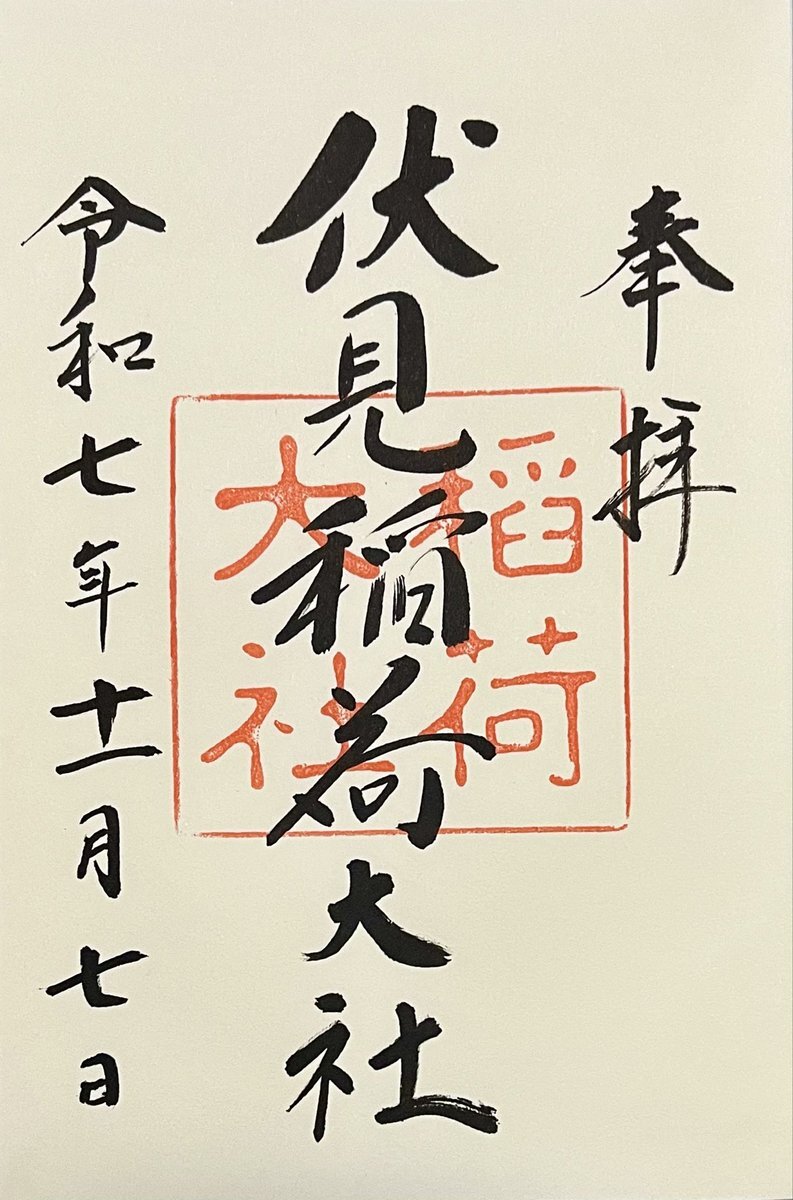 奉拝
伏見稲荷大社
稲荷
大社
令和七年十一月七日